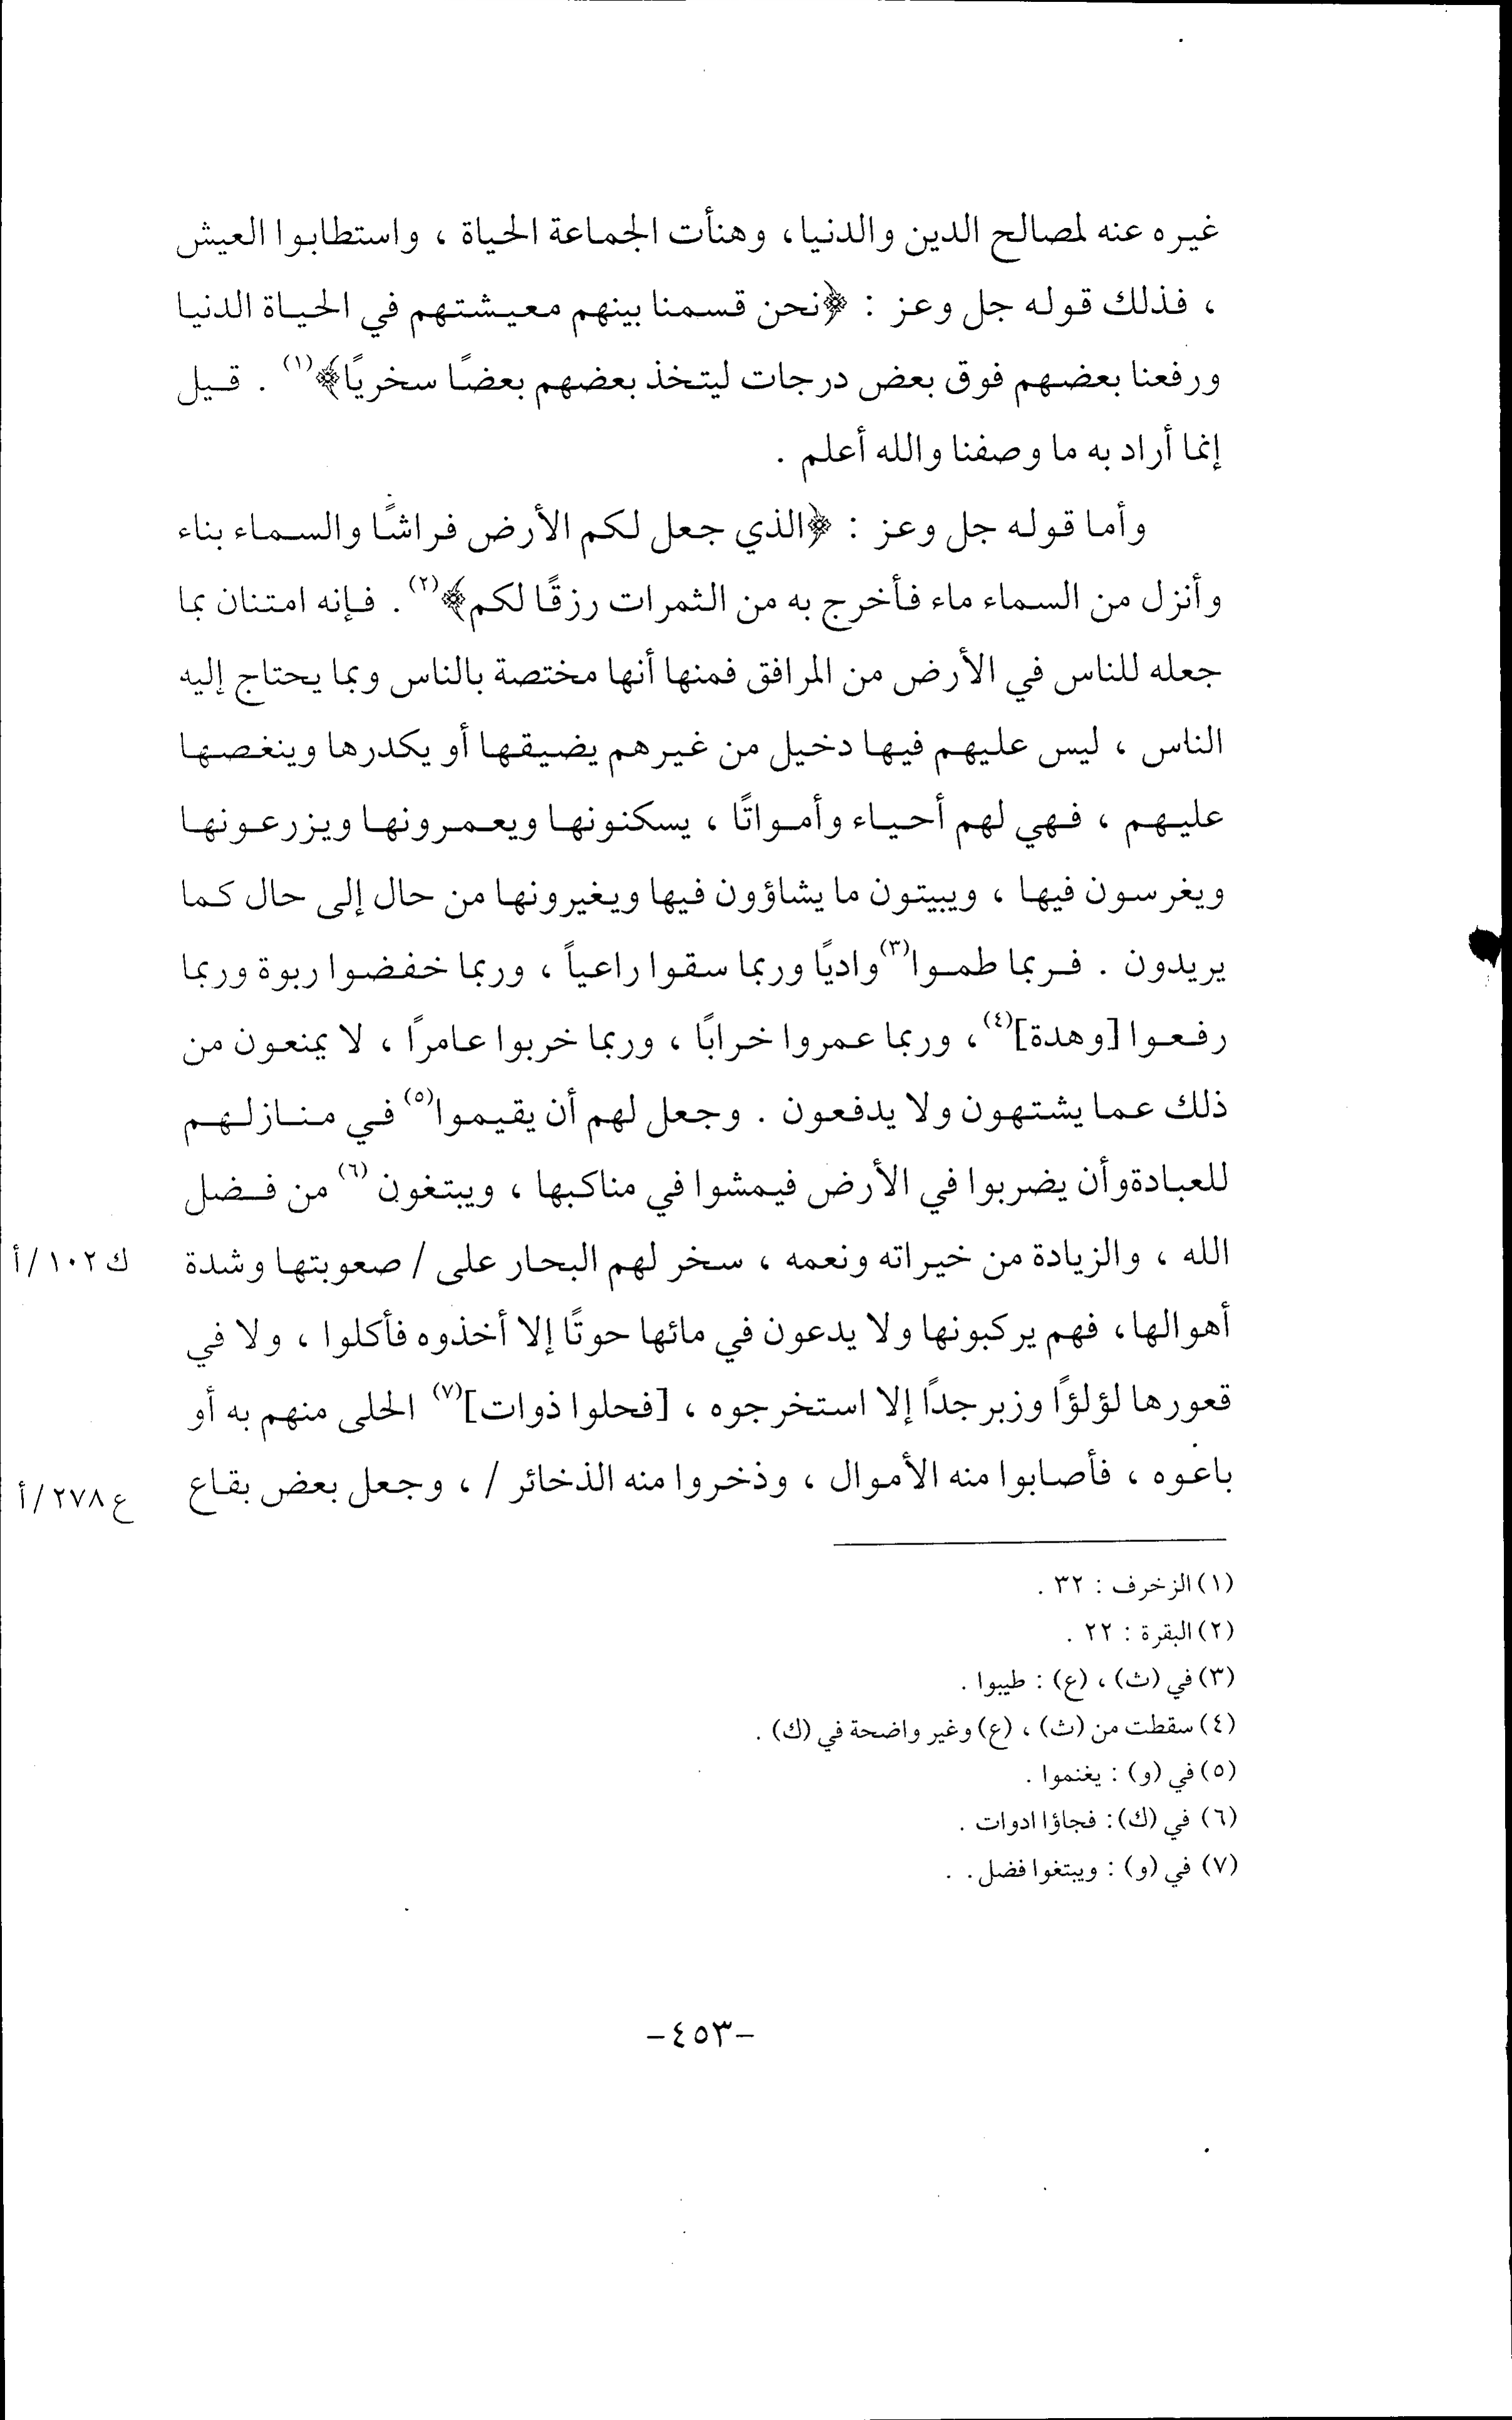 غيره عنه لمصالح الدين والدنيا، وهنأت الجماعة الحياة ، واستطابوا العيش
، فذلك قوله جل وعز : ﴿نحن قسمنا بينهم معيشتهم في الحياة الدنيا
ورفعنا بعضهم فوق بعض درجات ليتخذ بعضهم بعضًا سخريًا﴾(١) . قيل
إنما أراد به ما وصفنا والله أعلم .
وأما قوله جل وعز : ﴿الذي جعل لكم الأرض فراشًا والسماء بناء
وأنزل من السماء ماء فأخرج به من الثمرات رزقًا لكم﴾(٢) . فإنه امتنان بما
جعله للناس في الأرض من المرافق فمنها أنها مختصة بالناس وبما يحتاج إليه
الناس ، ليس عليهم فيها دخيل من غيرهم يضيقها أو يكدرها وينغصها
عليهم ، فهي لهم أحياء وأمواتًا ، يسكنونها ويعمرونها ويزرعونها
ويغرسون فيها ، ويبيتون ما يشاؤون فيها ويغيرونها من حال إلى حال كما
يريدون . فربما طموا(٣) واديًا وربما سقوا راعياً ، وربما خفضوا ربوة وربما
رفعوا [وهدة](٤) ، وربما عمروا خرابًا ، وربما خربوا عامرًا ، لا يمنعون من
ذلك عما يشتهون ولا يدفعون . وجعل لهم أن يقيموا(٥) في منازلهم
للعبادةوأن يضربوا في الأرض فيمشوا في مناكبها ، ويبتغون (٦) من فضل
الله ، والزيادة من خيراته ونعمه ، سخر لهم البحار على / صعوبتها وشدة
ك ١٠٢/أ
أهوالها، فهم يركبونها ولا يدعون في مائها حوتًا إلا أخذوه فأكلوا ، ولا في
قعورها لؤلؤًا وزبرجدًا إلا استخرجوه ، [فحلوا ذوات](٧) الحلى منهم به أو
باعوه ، فأصابوا منه الأموال ، وذخروا منه الذخائر / ، وجعل بعض بقاع
ع ٢٧٨/أ
(١) الزخرف : ٣٢ .
(٢) البقرة : ٢٢ .
(٣) في (ث) ، (ع) : طيبوا .
(٤) سقطت من (ث) ، (ع) وغير واضحة في (ك) .
(٥) في (و) : يغنموا .
(٦) في (ك): فجاؤا ادوات .
(٧) في (و) : ويبتغوا فضل . .
-٤٥٣-